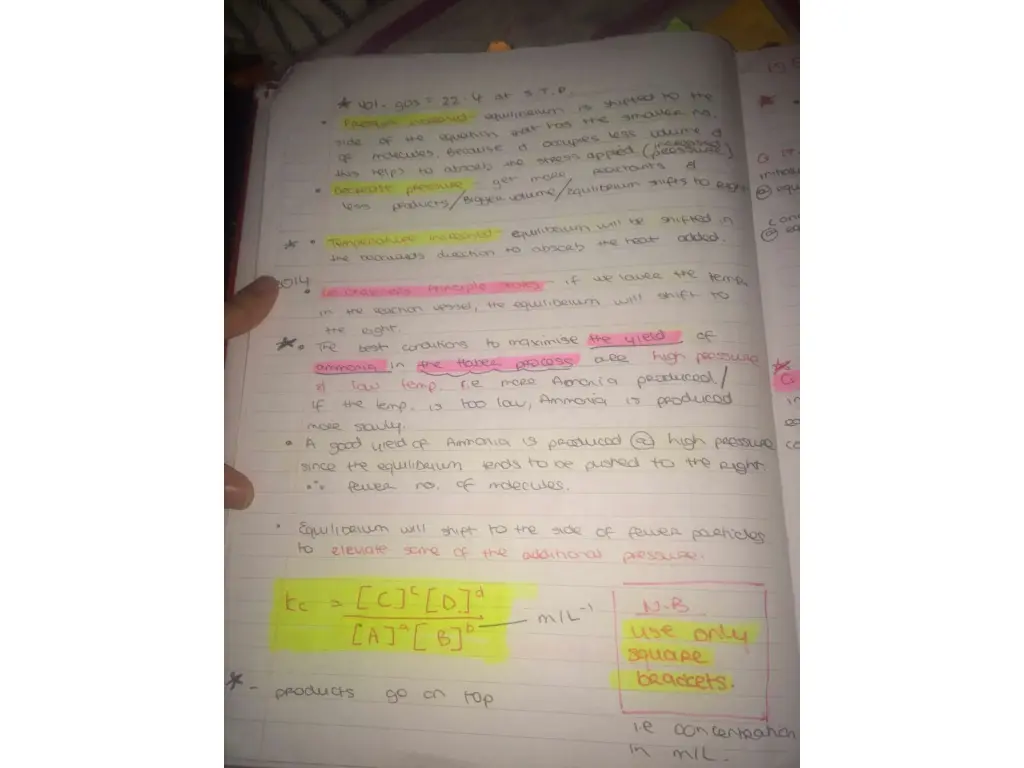 * vol. gas = 22.4 at S.T.P.
• Pressure increased - equilibrium is shifted to the
side of the equation that has the smaller no.
of molecules. Because it occupies less volume &
this helps to absorb the stress applied (pressure)
increased
• Decrease pressure - get more reactants &
less products/Bigger volume/Equilibrium shifts to right
* • Temperature increased - equilibrium will be shifted in
the backwards direction to absorb the heat added.
2014
• Le Chatliers Principle states - if we lower the temp.
in the reaction vessel, the equilibrium will shift to
the right.
* • The best conditions to maximise the yield of
ammonia in the Haber process are high pressure
& low temp. i.e more Amonia produced/
If the temp. is too low, Ammonia is produced
more slowly.
• A good yield of Ammonia is produced @ high pressure
since the equilibrium tends to be pushed to the right
∴ fewer no. of molecules.
• Equilibrium will shift to the side of fewer particles
to elevate some of the additional pressure.
Kc = [C]ᶜ[D]ᵈ
[A]ᵃ[B]ᵇ — m/L⁻¹
N.B
use only
square
brackets.
* - products go on top
i.e concentration
in m/L.